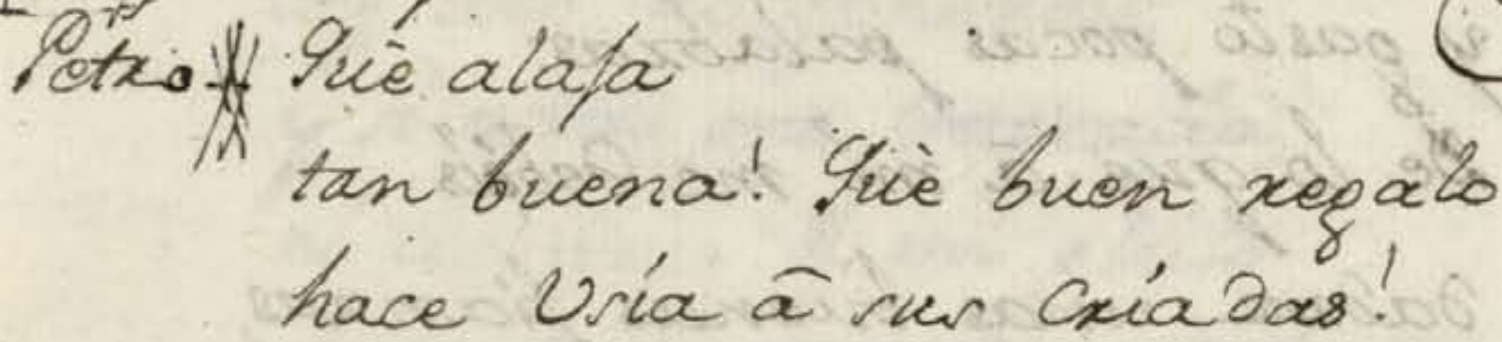 Petro. Què alaja
tan buena! Què buen regalo
hace Usía â sus Criadas!